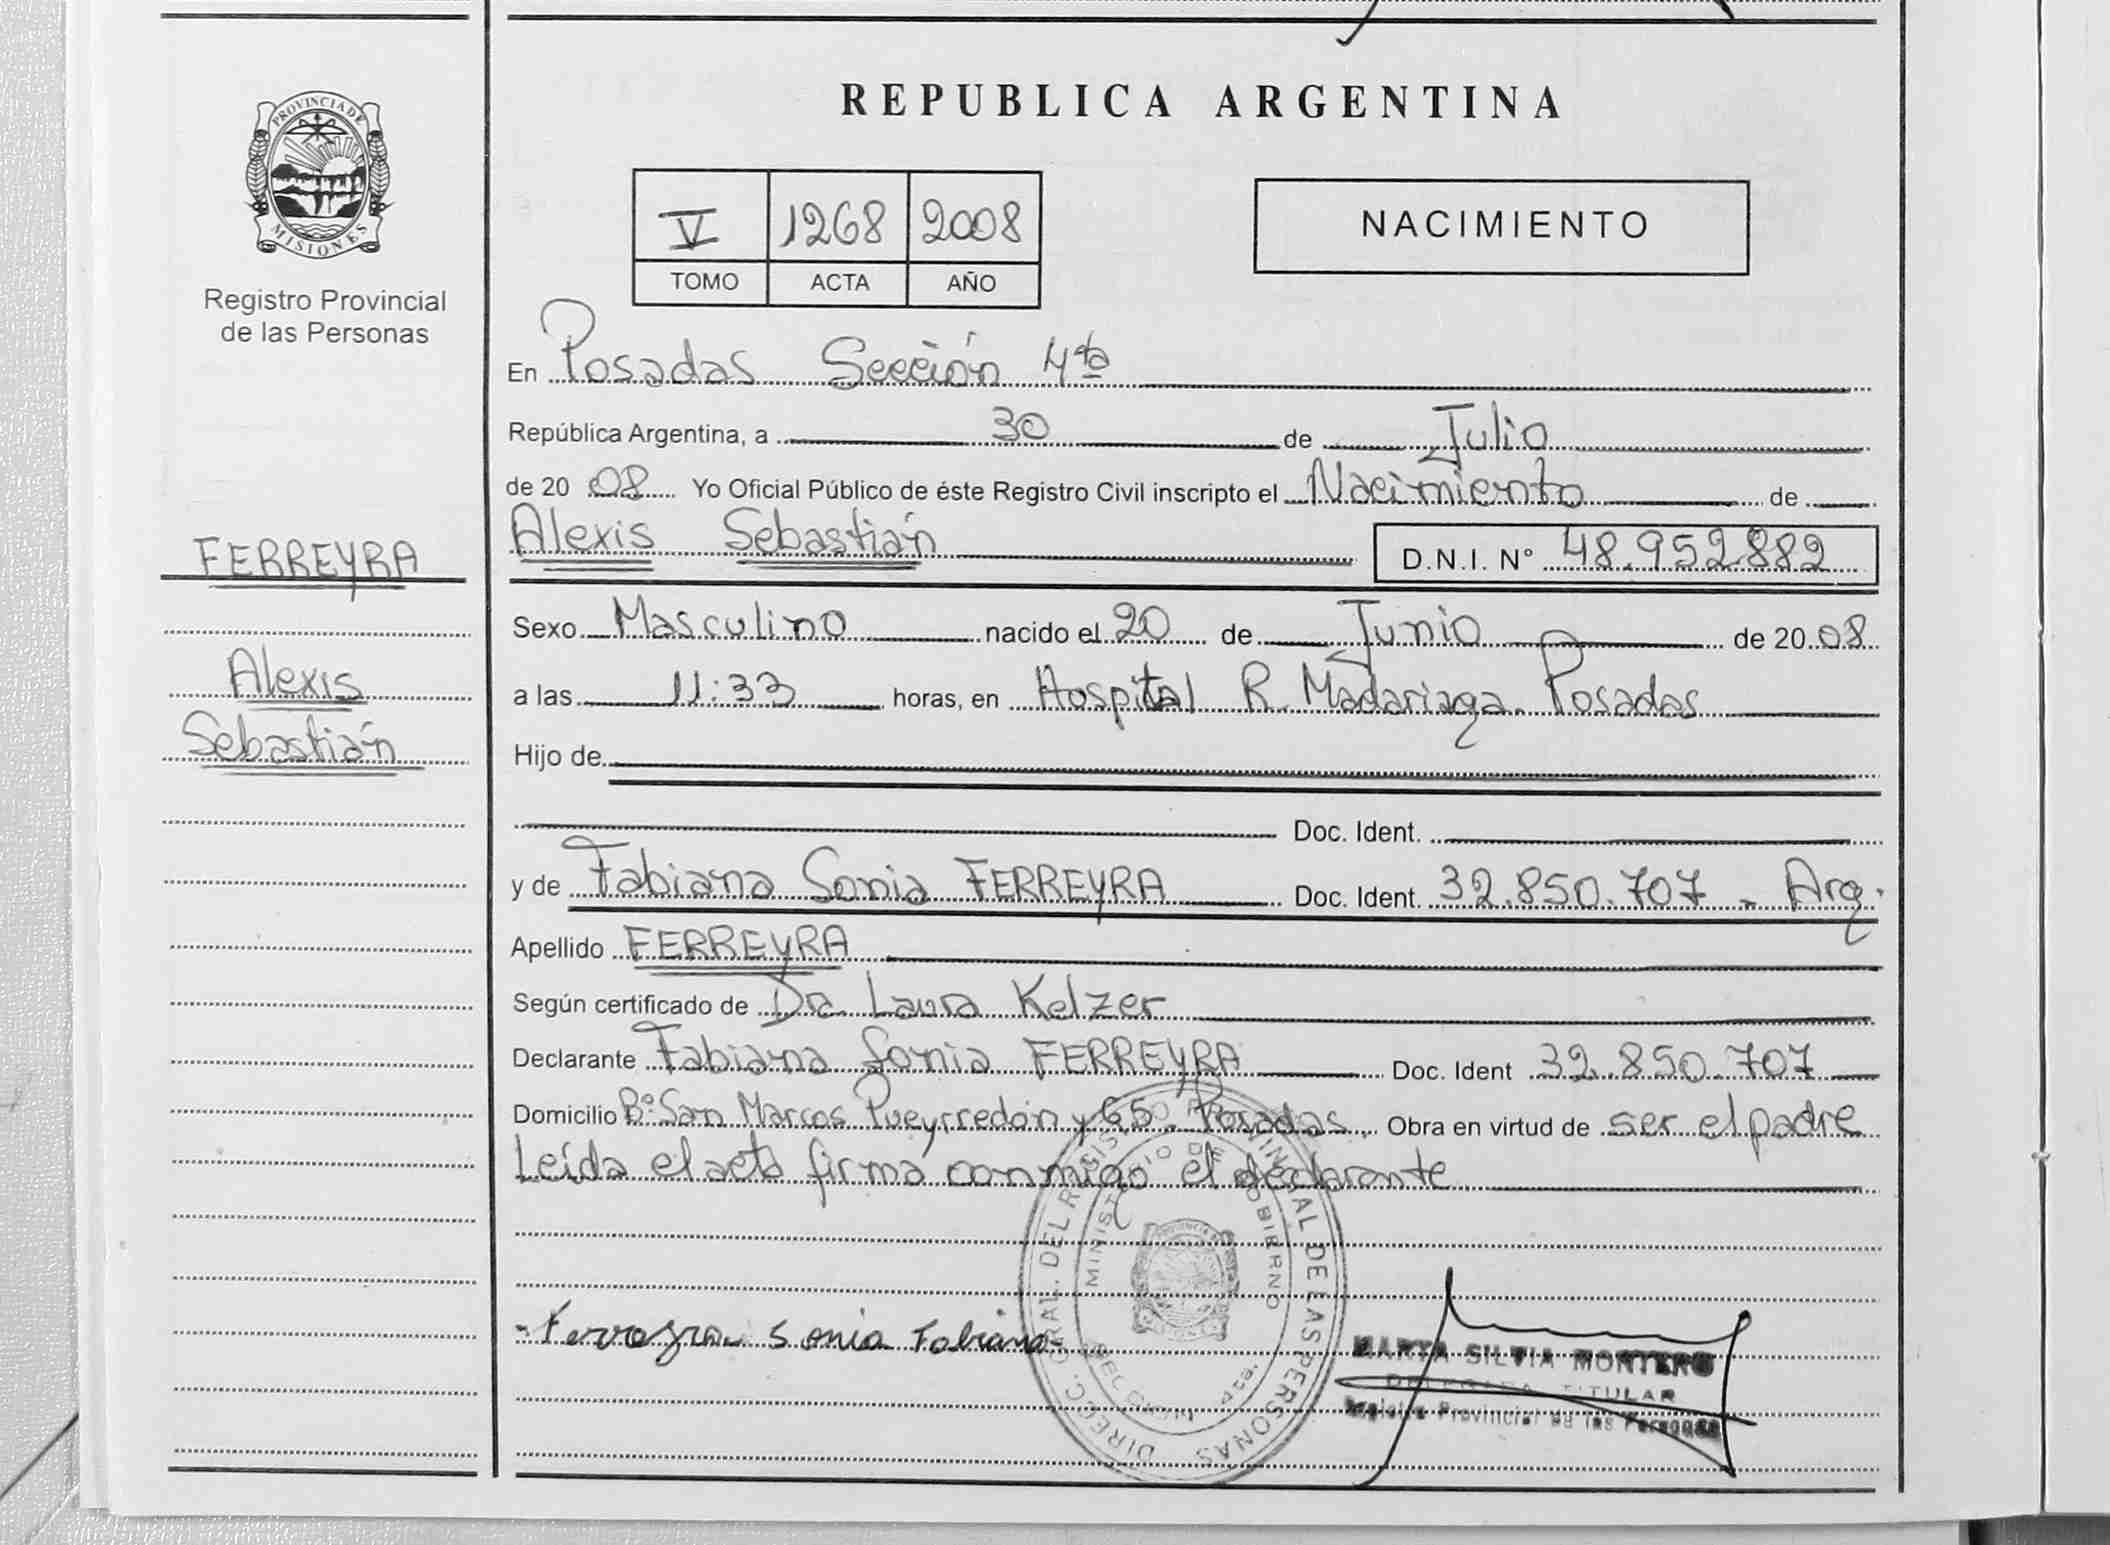 PROVINCIA DE
MISIONES
Registro Provincial
de las Personas
FERREYRA
Alexis
Sebastián
REPUBLICA ARGENTINA
V 1268 2008
TOMO ACTA AÑO
NACIMIENTO
En Posadas Sección 4ta
República Argentina, a 30 de Julio
de 20 08 Yo Oficial Público de éste Registro Civil inscripto el Nacimiento de
Alexis Sebastián D.N.I. N° 48.952.882
Sexo Masculino nacido el 20 de Junio de 20 08
a las 11:33 horas, en Hospital R. Madariaga. Posadas
Hijo de
Doc. Ident.
y de Fabiana Sonia FERREYRA Doc. Ident. 32.850.707 - Arg.
Apellido FERREYRA
Según certificado de Dra. Laura Kelzer
Declarante Fabiana Sonia FERREYRA Doc. Ident 32.850.707
Domicilio B° San Marcos Pueyrredón y 65. Posadas. Obra en virtud de ser el padre
Leída el acta firma conmigo el declarante
DIRECC. GRAL. DEL REGISTRO PROVINCIAL DE LAS PERSONAS
MINISTERIO DE GOBIERNO
4ta.
Ferreyra Sonia Fabiana
MARTA SILVIA MONTERO
DELEGADA TITULAR
Registro Provincial de las Personas